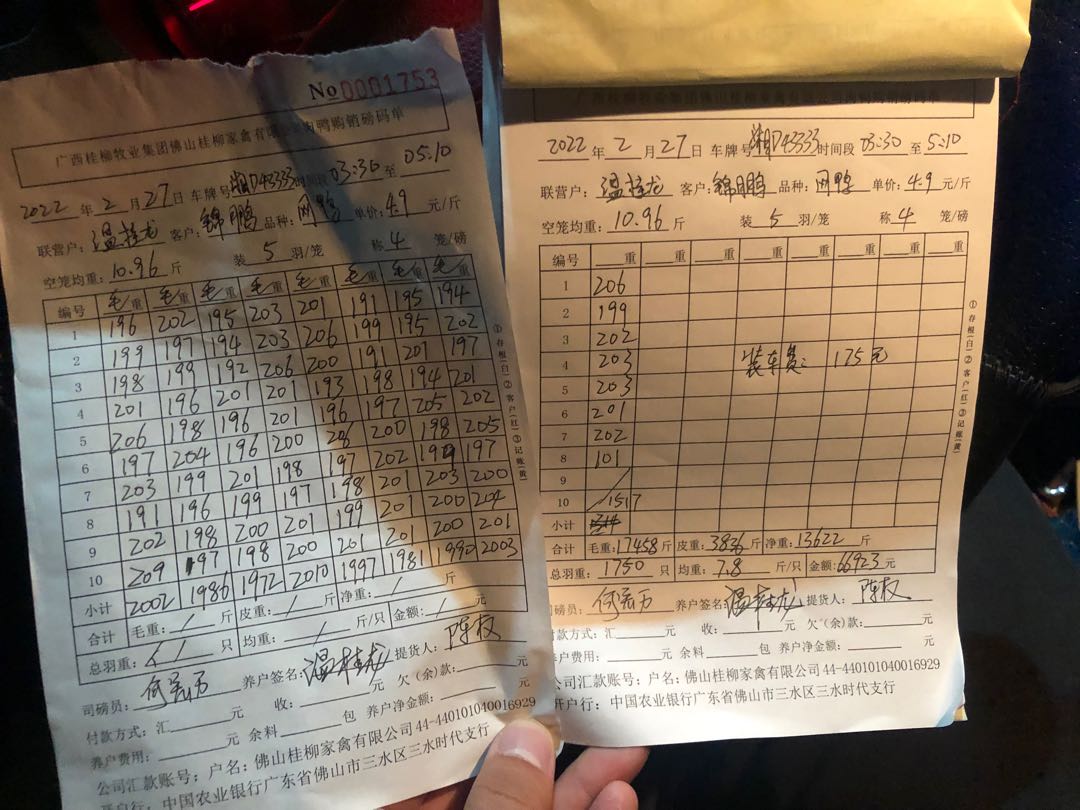 No 0001753
广西桂柳牧业集团佛山桂柳家禽有 肉鸭购销磅码单
2022 年 2 月 27 日 车牌号 湘D43333 时间段 03:30 至 05:10
联营户: 温桂龙 客户: 锦鹏 品种: 网鸭 单价: 4.9 元/斤
空笼均重: 10.96 斤 装 5 羽/笼 称 4 笼/磅
编号 毛重 毛重 毛重 毛重 毛重 毛重 毛重 毛重
1 196 202 195 203 201 191 195 194
2 199 197 194 203 206 199 195 202
3 198 199 192 206 200 191 201 197
4 201 196 201 201 193 198 194 201
5 206 198 196 201 196 197 205 202
6 197 204 196 200 206 200 198 205
7 203 199 201 198 197 202 199 197
8 191 196 199 197 198 201 203 200
9 202 198 200 201 199 201 200 204
10 209 197 198 200 201 201 200 201
小计 2002 1986 1972 2010 1997 1981 1990 2003
合计 毛重: / 斤 皮重: / 斤 净重: / 斤
总羽重: / 只 均重: / 斤/只 金额: / 元
司磅员: 养户签名: 温桂龙 提货人: 陈权
付款方式: 汇 元 收: 元 欠(余)款: 元
养户费用: 元 余料 包 养户净金额: 元
公司汇款账号: 户名: 佛山桂柳家禽有限公司44-440101040016929
开户行: 中国农业银行广东省佛山市三水区三水时代支行
①存根(白)②客户(红)③记账(黄)
西桂柳牧业集团佛山桂柳家禽有 磅码单
2022 年 2 月 27 日 车牌号 湘D43333 时间段 03:30 至 5:10
联营户: 温桂龙 客户: 锦鹏 品种: 网鸭 单价: 4.9 元/斤
空笼均重: 10.96 斤 装 5 羽/笼 称 4 笼/磅
编号 重 重 重 重 重 重 重 重
1 206
2 199
3 202
4 203 装车费: 175元
5 203
6 201
7 202
8 101
9 /
10 1517
小计
合计 毛重: 17458 斤 皮重: 3836 斤 净重: 13622 斤
总羽重: 1750 只 均重: 7.8 斤/只 金额: 66923 元
司磅员: 养户签名: 温桂龙 提货人: 陈权
付款方式: 汇 元 收: 元 欠(余)款: 元
养户费用: 元 余料 包 养户净金额: 元
公司汇款账号: 户名: 佛山桂柳家禽有限公司44-440101040016929
开户行: 中国农业银行广东省佛山市三水区三水时代支行
①存根(白)②客户(红)③记账(黄)